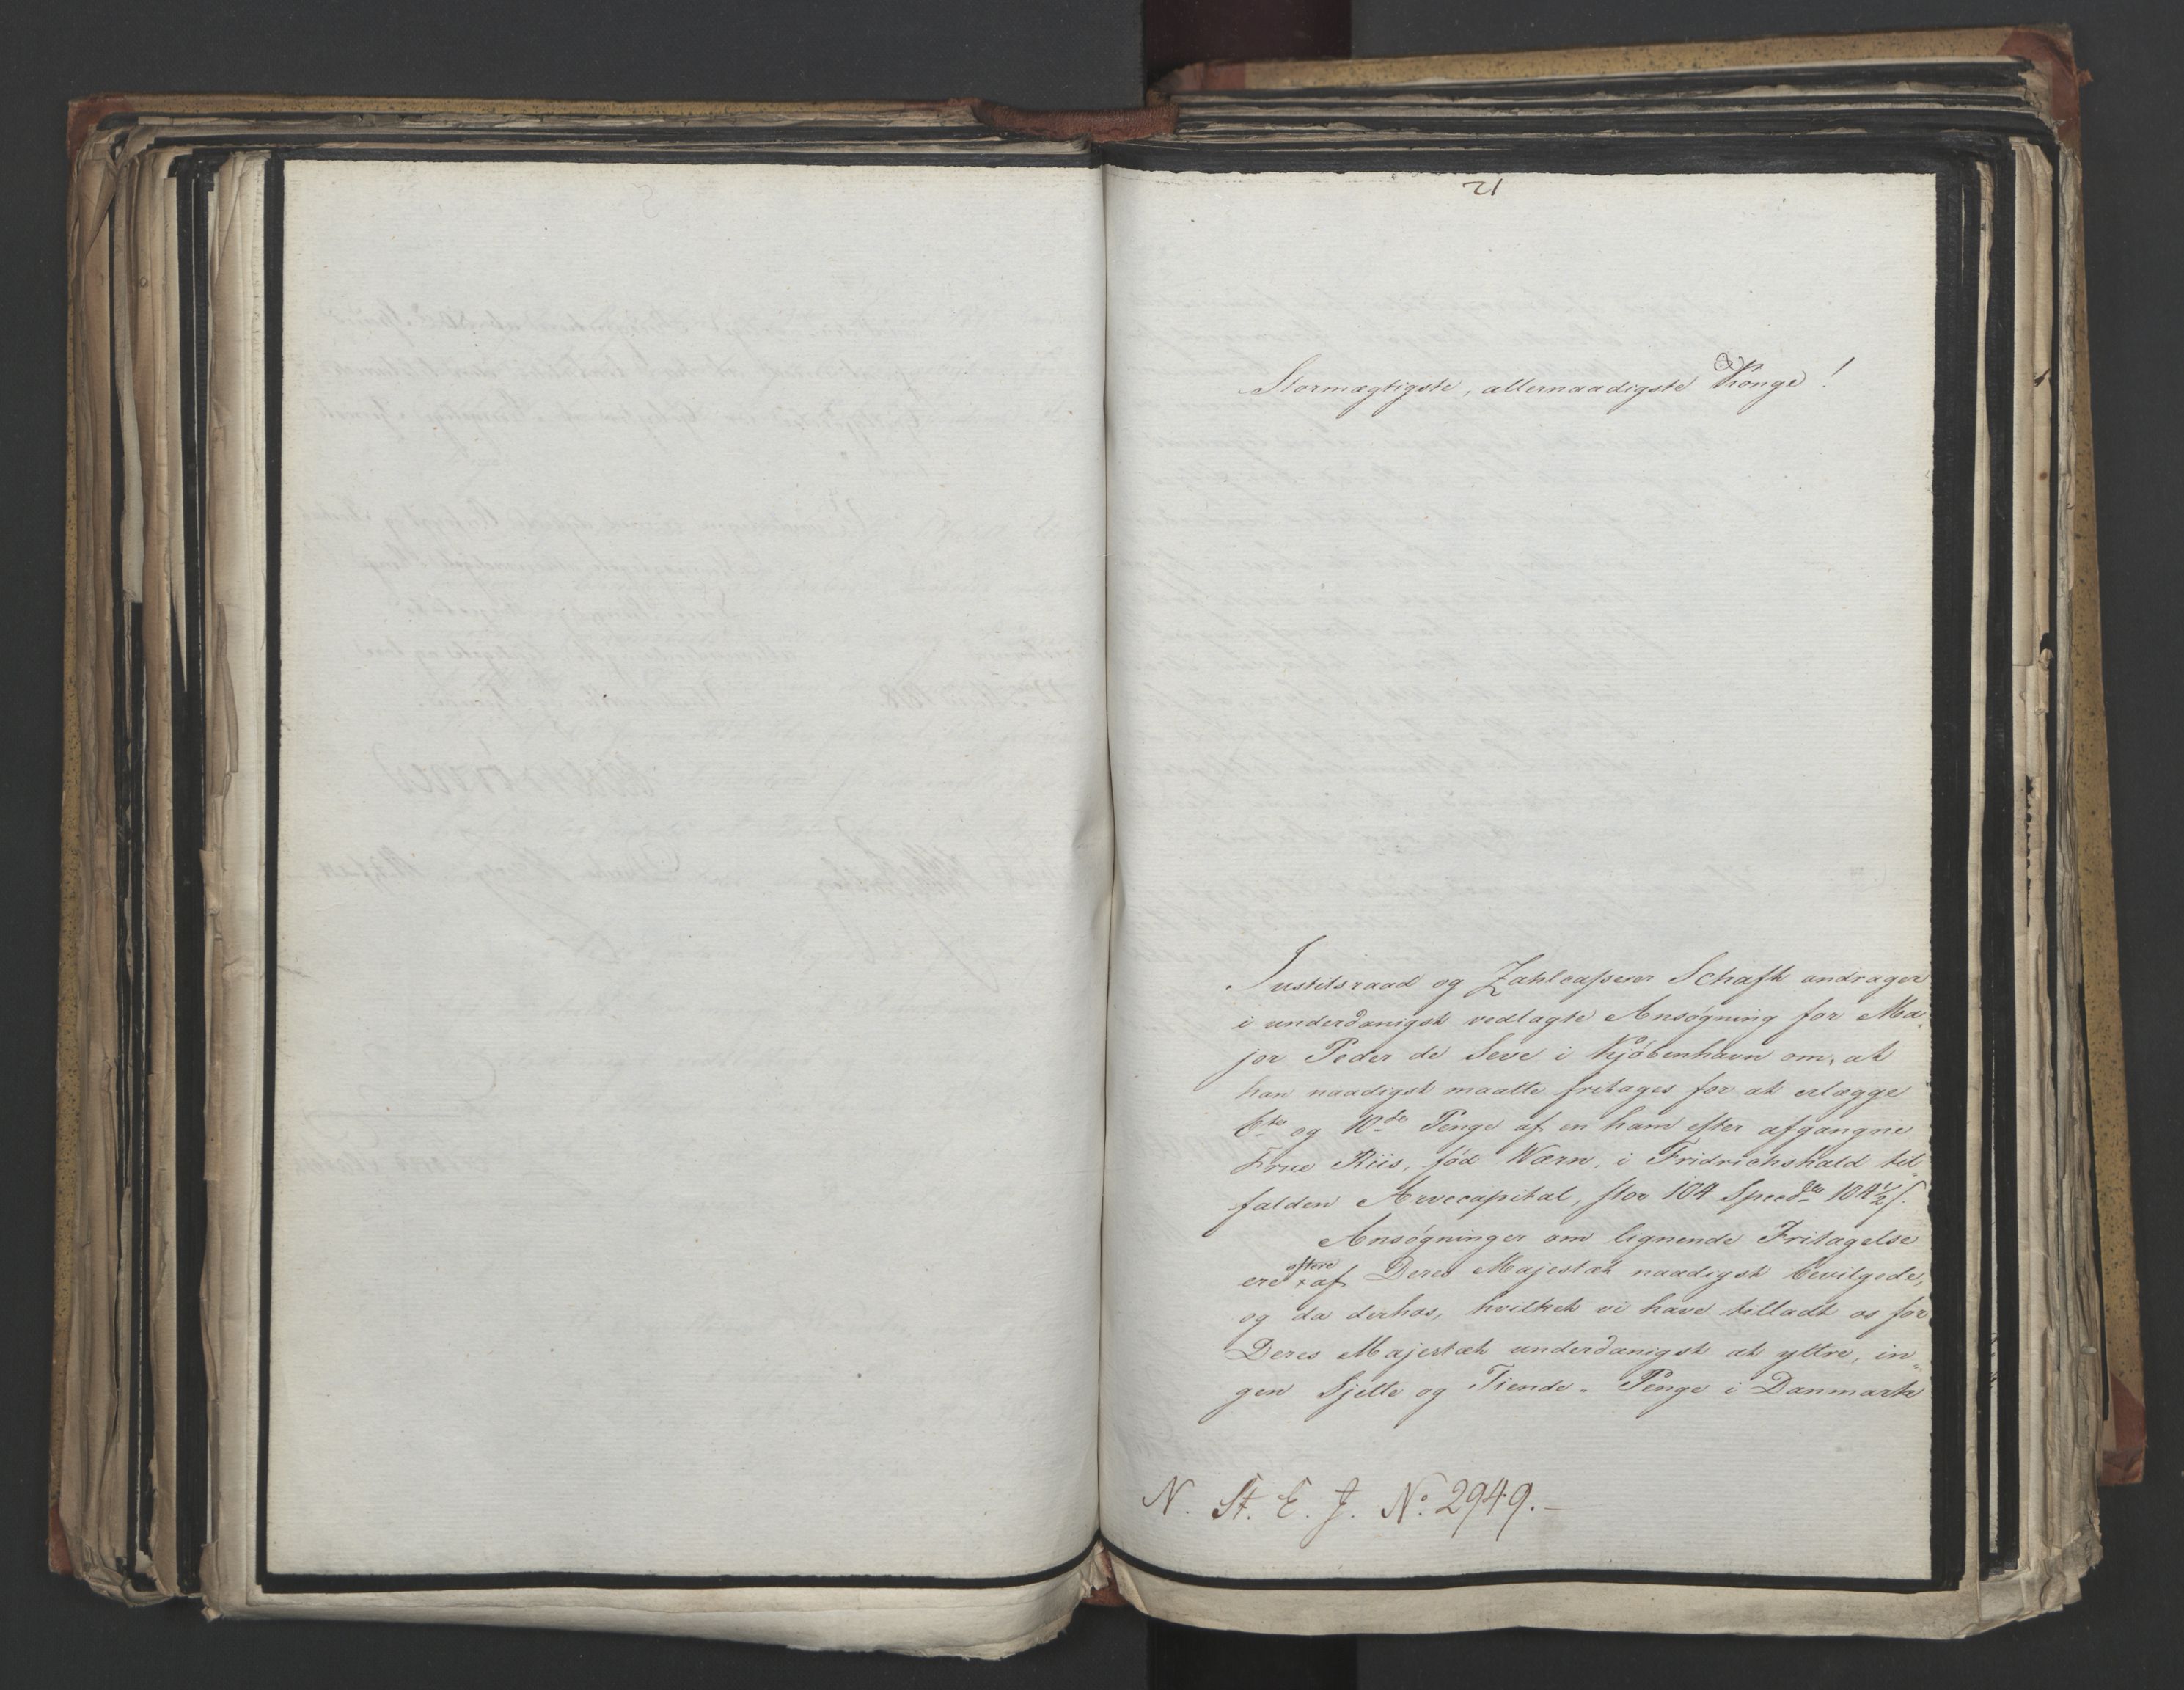 21
Stormægtigste, allernaadigste Konge!
Justitsraad og Zahlcasserer Schaft andrager
i underdanigst vedlagte Ansøgning for Ma„
jor Peder de Seve i Kjøbenhavn om, at
han naadigst maatte fritages for at erlægge
6te og 10de Penge af en ham efter afgangne
Frue Riis, fød Wærn, i Fridrichshald til„
falden Arvecapital, stor 104 Specdlr 104½ s.
Ansøgninger om lignende Fritagelse
ere oftere af Deres Majestæt naadigst bevilgede,
og da derhos, hvilket vi have tilladt os for
Deres Majestæt underdanigst at yttre, in„
gen Sjette og Tiende- Penge i Danmark
N. St. E. J. No. 2949.-